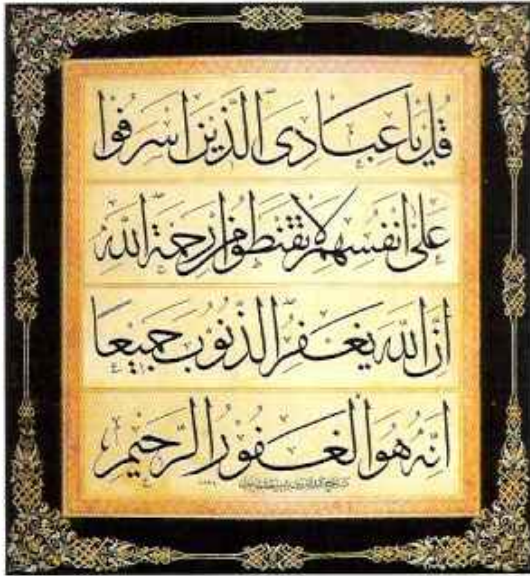 قُلْ يَا عِبَادِىَ الَّذِينَ اَسْرَفُوا
عَلٰى اَنْفُسِهِمْ لَا تَقْنَطُوا مِنْ رَحْمَةِ اللّٰهِ
اِنَّ اللّٰهَ يَغْفِرُ الذُّنُوبَ جَمِيعًا
اِنَّهُ هُوَ الْغَفُورُ الرَّحِيمُ